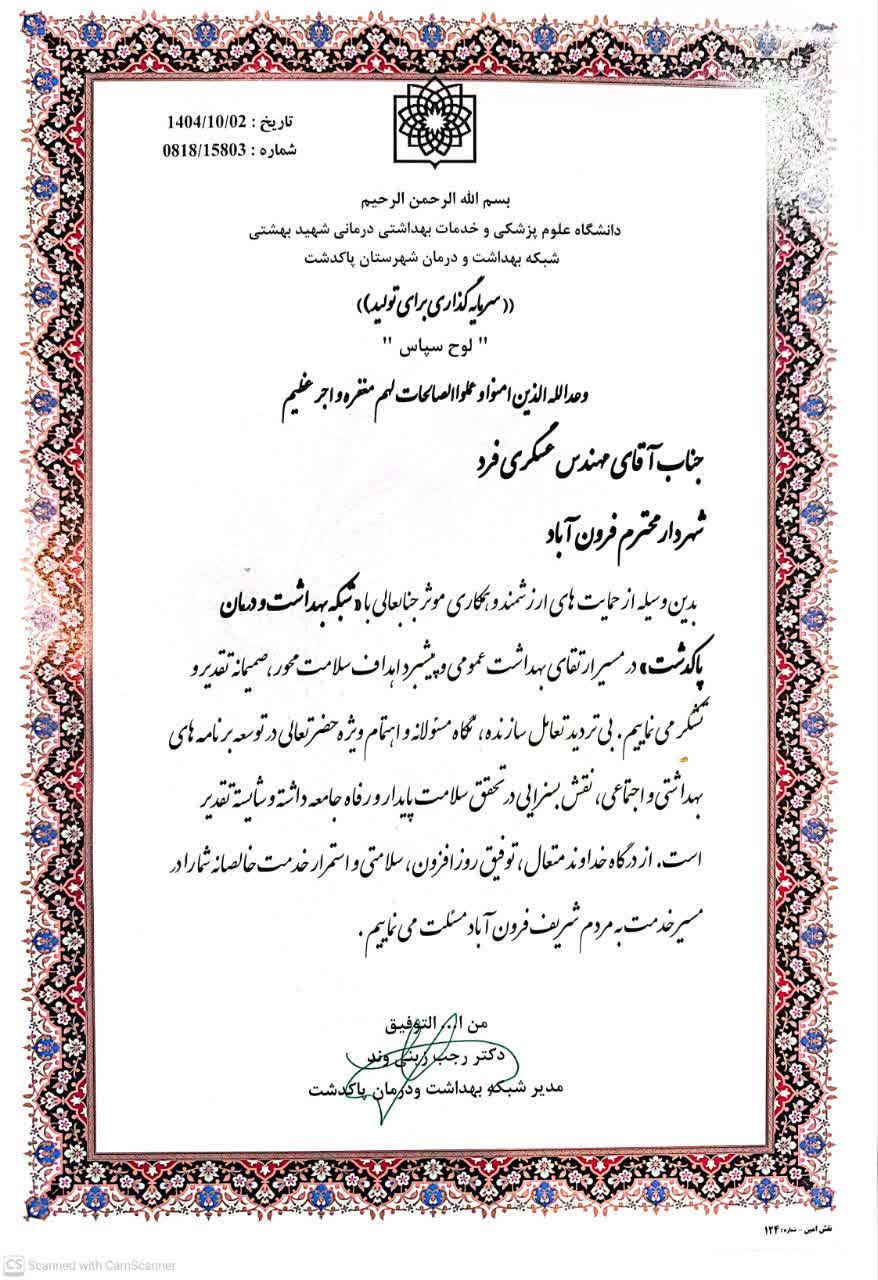 تاریخ : 1404/10/02
شماره : 0818/15803
بسم الله الرحمن الرحیم
دانشگاه علوم پزشکی و خدمات بهداشتی درمانی شهید بهشتی
شبکه بهداشت و درمان شهرستان پاکدشت
((سرمایه گذاری برای تولید))
" لوح سپاس "
وعدالله الذین امنوا و عملوا الصالحات لهم مغفره و اجر عظیم
جناب آقای مهندس عسگری فرد
شهردار محترم فرون آباد
بدین وسیله از حمایت های ارزشمند و همکاری موثر جنابعالی با «شبکه بهداشت و درمان
پاکدشت» در مسیر ارتقای بهداشت عمومی و پیشبرد اهداف سلامت محور، صمیمانه تقدیر و
تشکر می نماییم. بی تردید تعامل سازنده، نگاه مسئولانه و اهتمام ویژه حضرتعالی در توسعه برنامه های
بهداشتی و اجتماعی، نقش بسزایی در تحقق سلامت پایدار و رفاه جامعه داشته و شایسته تقدیر
است. از درگاه خداوند متعال، توفیق روز افزون، سلامتی و استمرار خدمت خالصانه شما را در
مسیر خدمت به مردم شریف فرون آباد مسئلت می نماییم.
من ا... التوفیق
دکتر رجب زینی وند
مدیر شبکه بهداشت ودرمان پاکدشت
نقش امین - شماره: ۱۲۴
CS Scanned with CamScanner